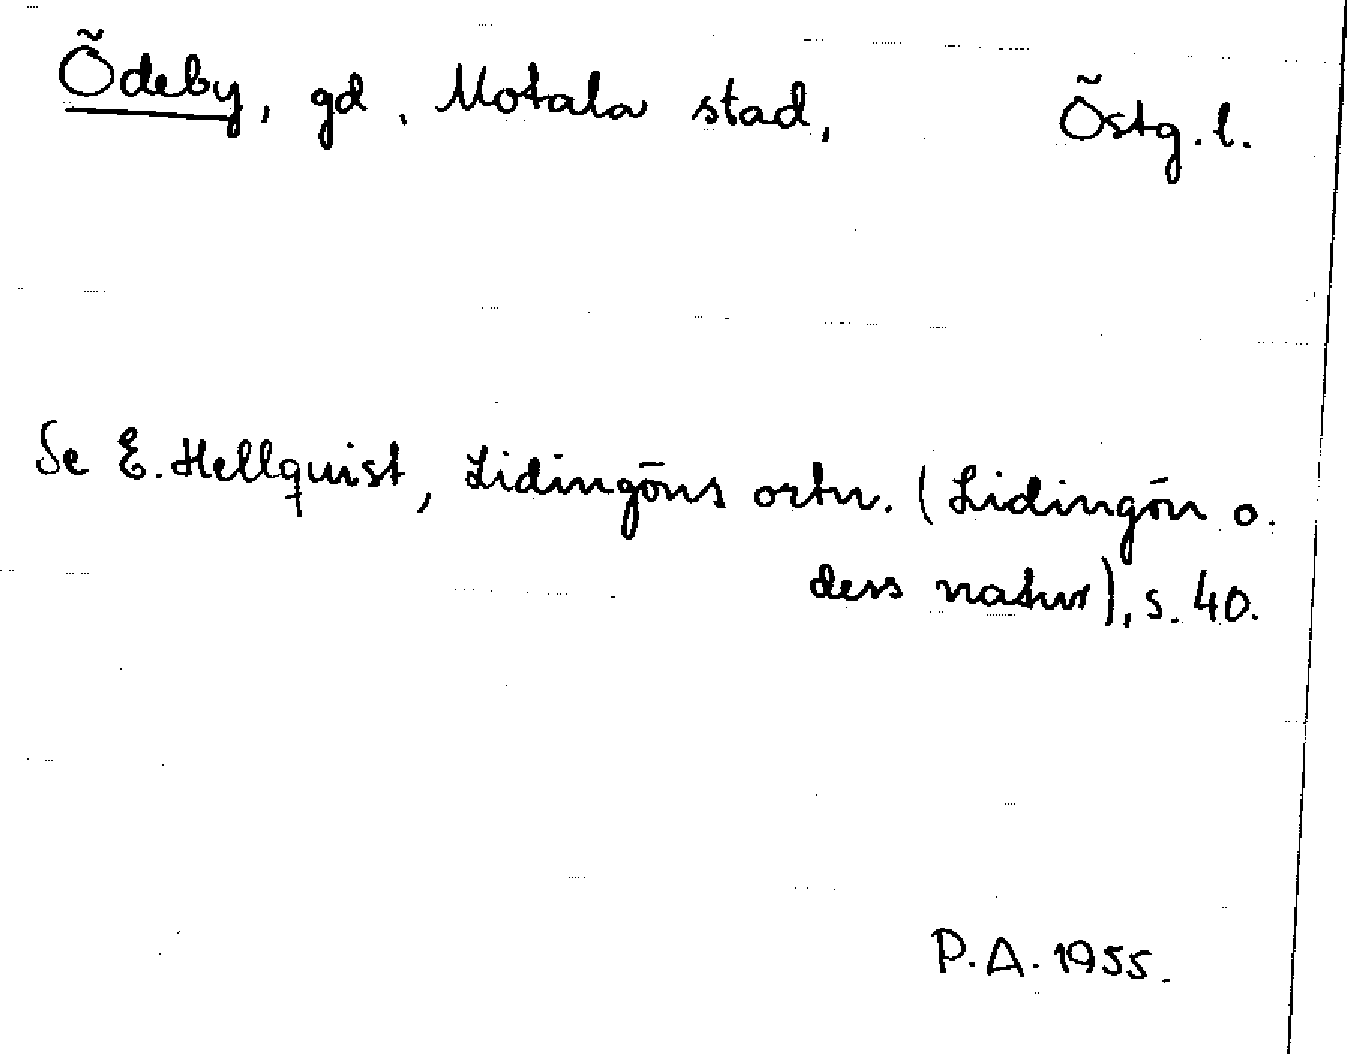 Ödeby, gd, Motala stad, Östg. l.
Se E. Hellquist, Lidingöns ortn. (Lidingön o.
dess natur), s. 40.
P.A. 1955.